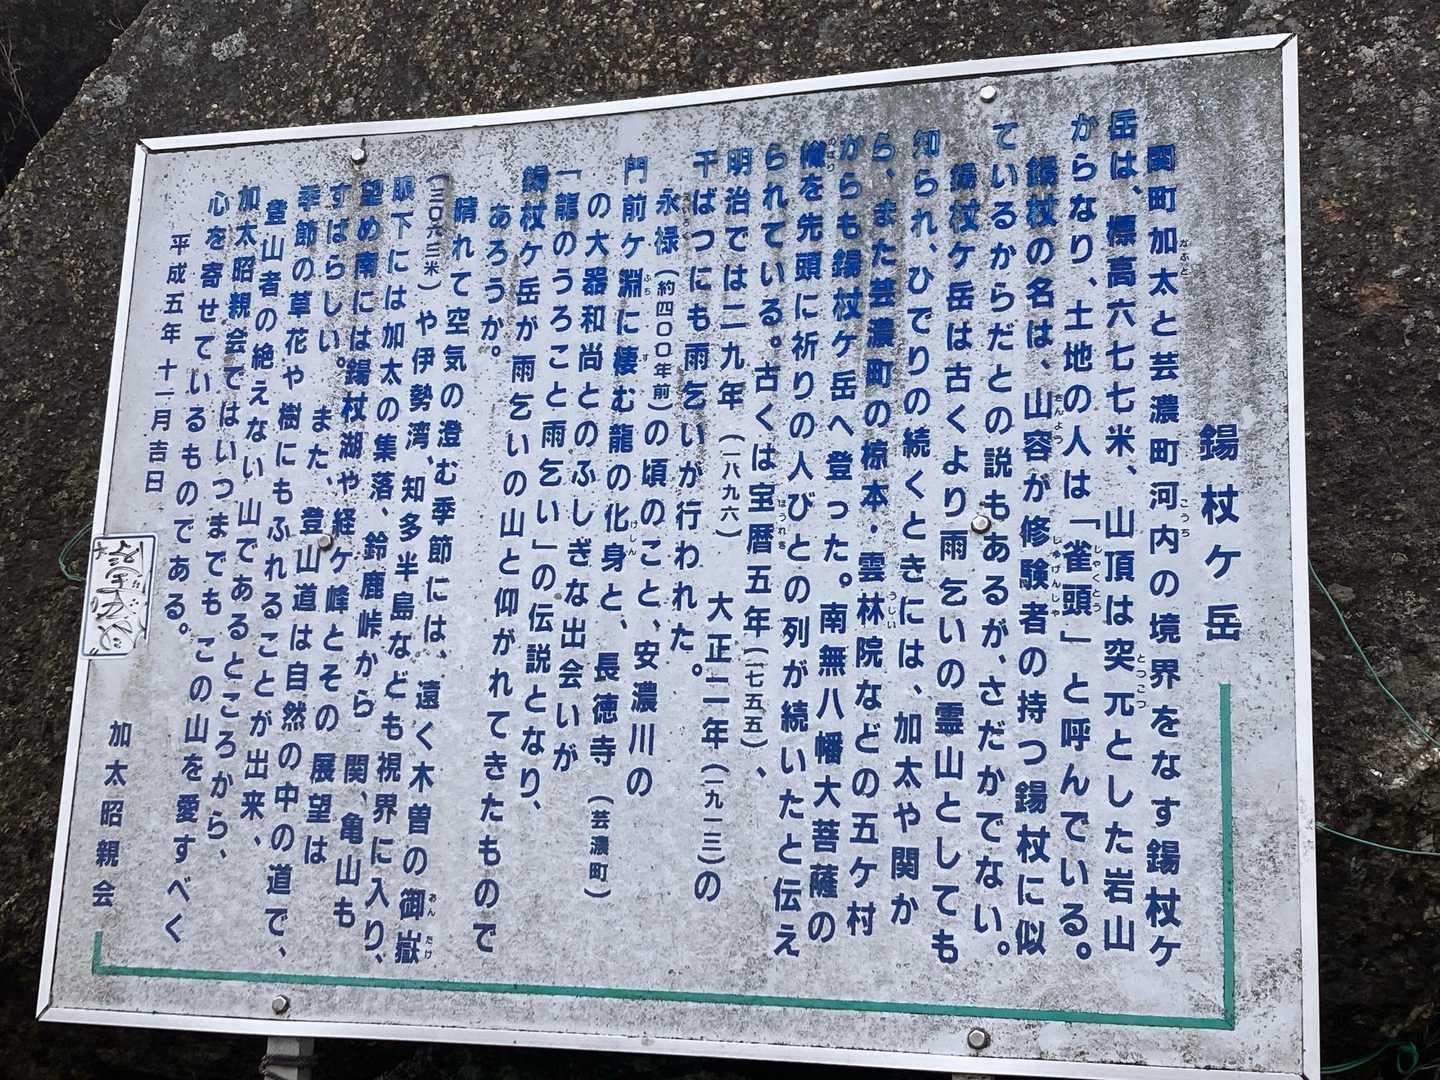 錫杖ケ岳
関町加太と芸濃町河内の境界をなす錫杖ケ
岳は、標高六七七米、山頂は突兀とした岩山
からなり、土地の人は「雀頭」と呼んでいる。
錫杖の名は、山容が修験者の持つ錫杖に似
ているからだとの説もあるが、さだかでない。
錫杖ケ岳は古くより雨乞いの霊山としても
知られ、ひでりの続くときには、加太や関か
ら、また芸濃町の椋本・雲林院などの五ケ村
からも錫杖ケ岳へ登った。南無八幡大菩薩の
幟を先頭に祈りの人びとの列が続いたと伝え
られている。古くは宝暦五年(一七五五)、
明治では二九年(一八九六)大正二年(一九一三)の
干ばつにも雨乞いが行われた。
永禄(約四〇〇年前)の頃のこと、安濃川の
門前ケ淵に棲む龍の化身と、長徳寺(芸濃町)
の大器和尚とのふしぎな出会いが
「龍のうろこと雨乞い」の伝説となり、
錫杖ケ岳が雨乞いの山と仰がれてきたもので
あろうか。
晴れて空気の澄む季節には、遠く木曽の御嶽
(三〇六三米)や伊勢湾、知多半島なども視界に入り、
眼下には加太の集落、鈴鹿峠から関、亀山も
望め南には錫杖湖や経ケ峰とその展望は
すばらしい。また、登山道は自然の中の道で、
季節の草花や樹にもふれることが出来、
登山者の絶えない山であるところから、
加太昭親会ではいつまでもこの山を愛すべく
心を寄せているものである。
平成五年十一月吉日
加太昭親会